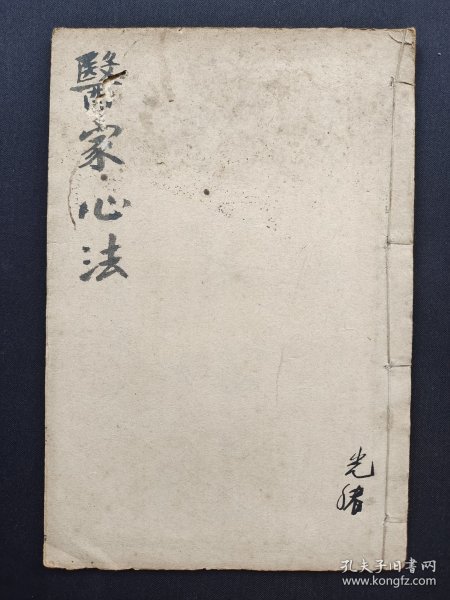 醫家心法
光緒
孔夫子旧书网
www.kongfz.com